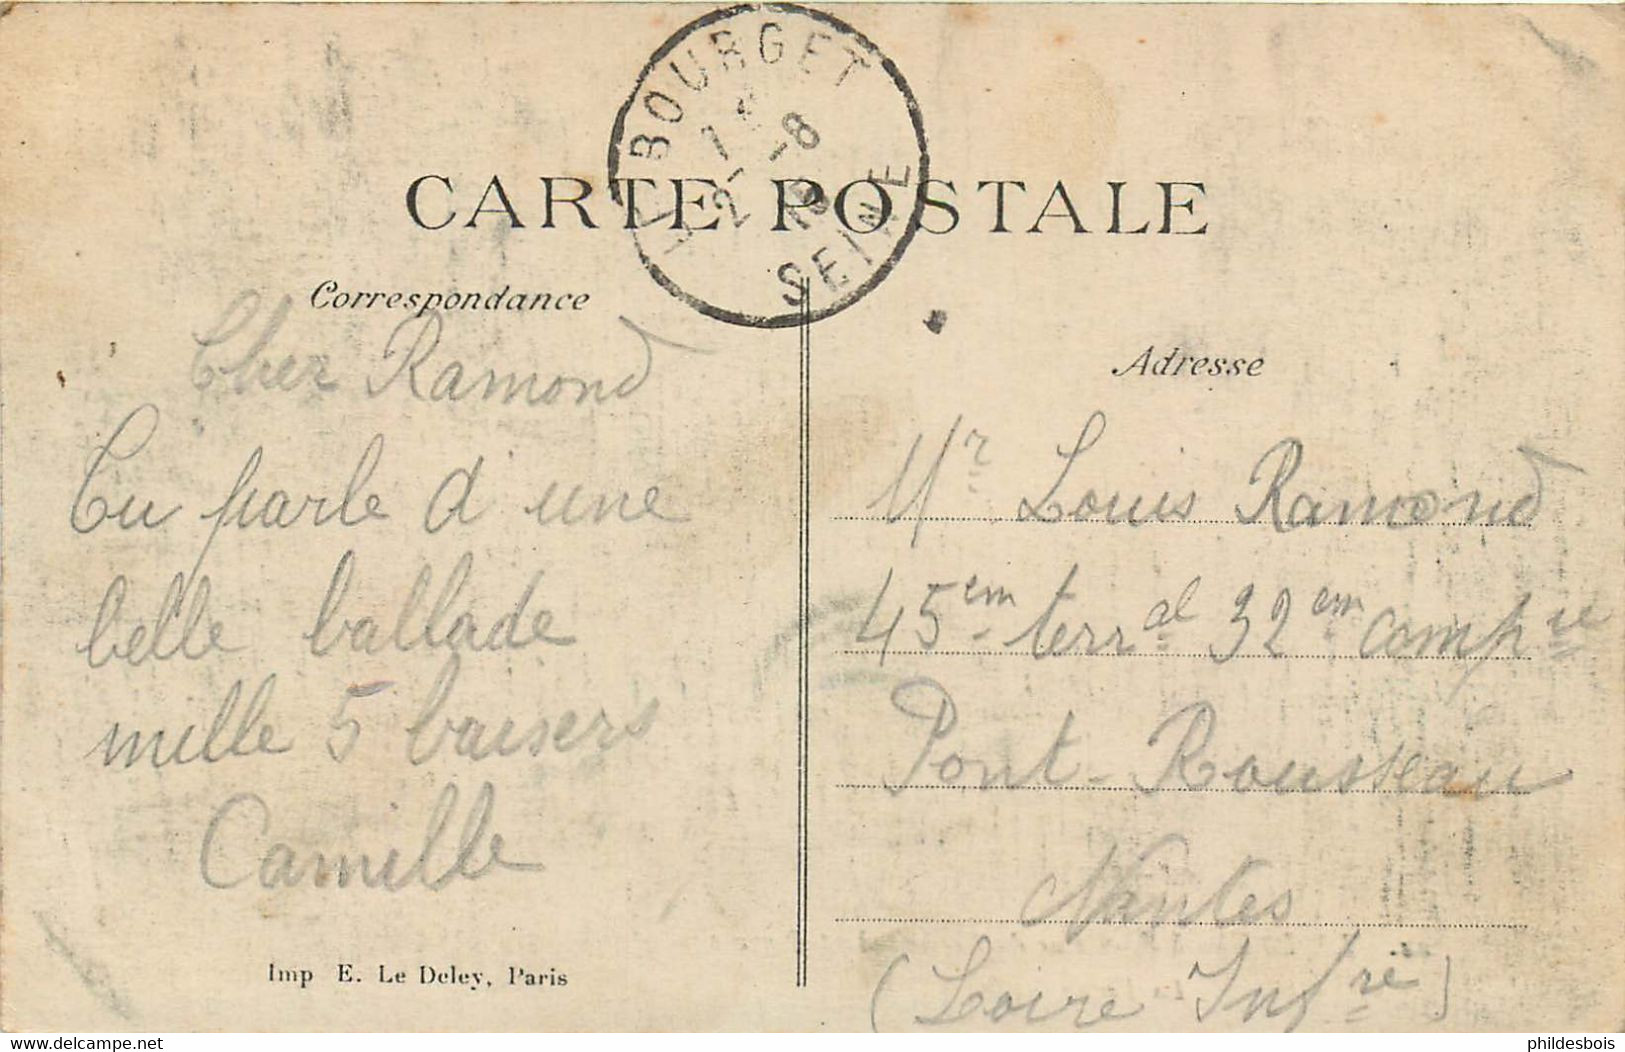 LE BOURGET
2-8
15
SEINE
CARTE POSTALE
Correspondance
Cher Ramond
Tu parle d une
belle ballade
mille 5 baisers
Camille
Imp E. Le Deley, Paris
Adresse
Mr Louis Ramond
45em terral 32em compie
Pont-Rousseau
Nantes
(Loire Infre)
www.delcampe.net
phildesbois